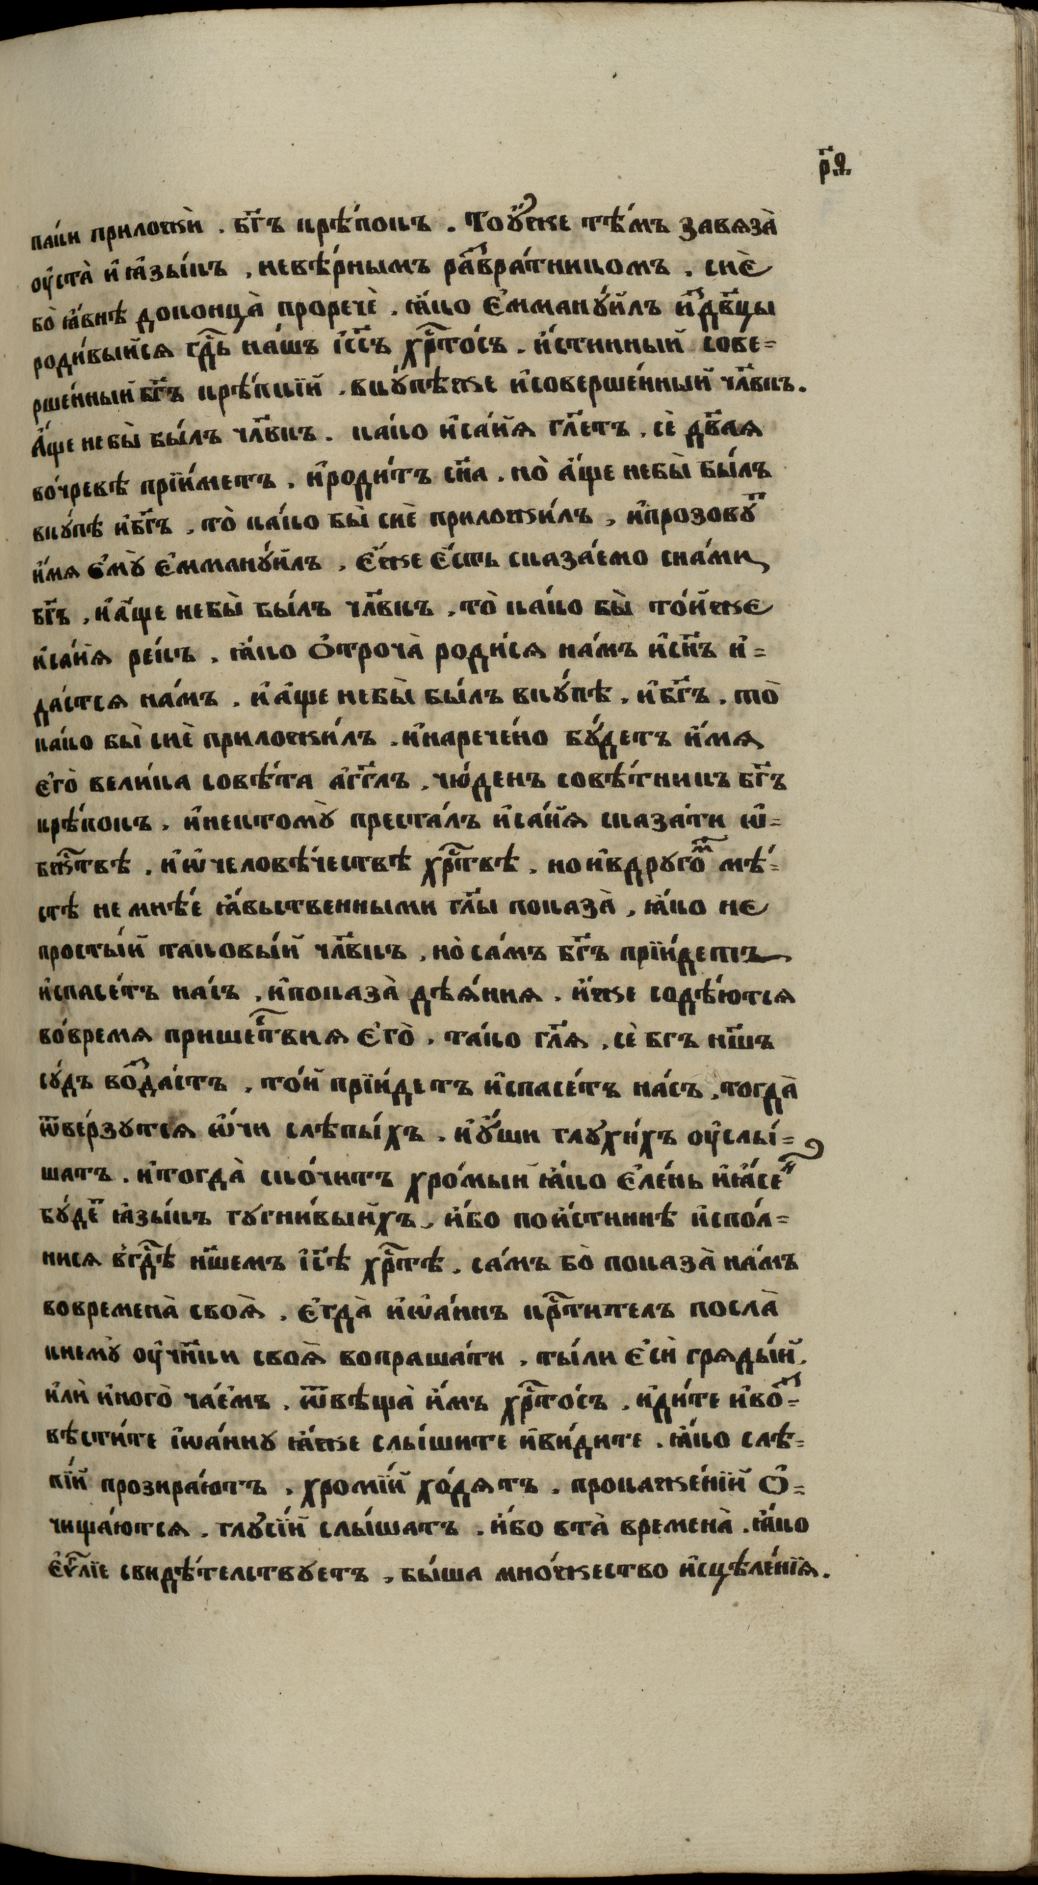 р҃ѳ.
па́ки приложѝ . бг҃ъ крѣ́покъ . Тоу́же тѣ́мъ завѧза̀
оу҆ста̀ и҆ ꙗ҆зы́къ , невѣ́рнымъ раⷥвра́тникомъ . сиѐ
бо̀ ꙗ҆́внѣ доконца̀ проречѐ . ꙗ҆́ко є҆мману́илъ иⷥдв҃цы
роди́выйсѧ гдⷭ҇ь на́шъ і҆с҃съ хрⷭ҇то́съ . и҆́стинный сове=
рше́нный бг҃ъ крѣ́пкїй . вку́пѣже и҆соверше́нный чл҃вкъ .
А҆́ще небы̀ бы́лъ чл҃вкъ . ка́ко и҆са́їѧ гл҃етъ . сѐ дв҃аѧ
во́чревѣ прїи́метъ . и҆роди́тъ сн҃а . но̀ а҆́ще небы̀ бы́лъ
вку́пѣ и҆бг҃ъ , то̀ ка́ко бы̀ сиѐ приложи́лъ , и҆прозовуⷮ
и҆́мѧ є҆мꙋ̀ є҆ммануи́лъ , є҆́же є҆́сть сказа́емо сна́ми
бг҃ъ , и҆а҆́ще небы̀ бы́лъ чл҃вкъ , то̀ ка́ко бы̀ то́йже
и҆са́їѧ ре́къ . ꙗ҆́ко ѻ҆троча̀ роди́сѧ на́мъ и҆сн҃ъ и҆=
да́стсѧ на́мъ . и҆ а҆́ще небы̀ бы́лъ вку́пѣ . и҆бг҃ъ . то̀
ка́ко бы̀ сиѐ приложи́лъ . и҆наречено̀ бу́детъ и҆́мѧ
є҆го̀ вели́ка совѣ́та а҆́гг҃лъ , чю́денъ совѣ́тникъ бг҃ъ
крѣ́покъ . и҆нектому̀ преста́лъ и҆са́їѧ сказа́ти ѡ҆=
бжⷭ҇твѣ , и҆ ѡ҆человѣ́чествѣ хрⷭ҇твѣ . но и҆вдругоⷨ мѣ́=
стѣ не мнѣ́е ꙗ҆́вьственными гл҃ы показа̀ , ꙗ҆́ко не
просты́й таковы́й чл҃вкъ , но̀ са́мъ бг҃ъ прїи́детъ
и҆спасе́тъ на́съ , и҆показа̀ дѣѧ́ниѧ . и҆́же содѣ́ютсѧ
во́времѧ пришеⷭ҇твиѧ є҆го̀ . та́ко гл҃ѧ , сѐ бг҃ъ нш҃ъ
су́дъ воⷥда́стъ , то́й прїи́детъ и҆спасе́тъ на́съ , тогда̀
ѿве́рзутсѧ ѡ҆́чи слѣпы́хъ . и҆ у҆́ши глухи́хъ оу҆слы́=
шатъ . и҆тогда̀ ско́читъ хро́мый ꙗ҆́ко є҆ле́нь и҆ ꙗ҆́сеⷩ
бу́деⷮ ꙗ҆зы́къ гугни́выихъ , и҆́бо пои́стиннѣ и҆спо́л=
нисѧ в҆гдⷭ҇ѣ нш҃емъ і҆с҃ѣ хрⷭ҇тѣ . са́мъ бо̀ показа̀ на́мъ
вовремена̀ своѧ̀ . є҆гда̀ и҆ѡа́ннъ крⷭ҇титель посла̀
кнему̀ оу҆чн҃ки своѧ̀ вопраша́ти . ты́ли є҆сѝ грѧды́й ,
и҆лѝ и҆ного̀ ча́емъ . ѿвѣща̀ и҆́мъ хрⷭ҇то́съ . и҆ди́те и҆воⷥ=
вѣсти́те і҆ѡа́нну ꙗ҆́же слы́шите и҆ви́дите . ꙗ҆́ко слѣ=
пі́и прозира́ютъ . хромі́и хо́дѧтъ . прокаже́нїи ѻ҆=
чища́ютсѧ . глусі́и слы́шатъ . и҆́бо вта̀ времена̀ . ꙗ҆́ко
є҆ѵⷢ҇лїе свидѣ́тельствуетъ , бы́ша мно́жество и҆сцѣле́нїѧ .